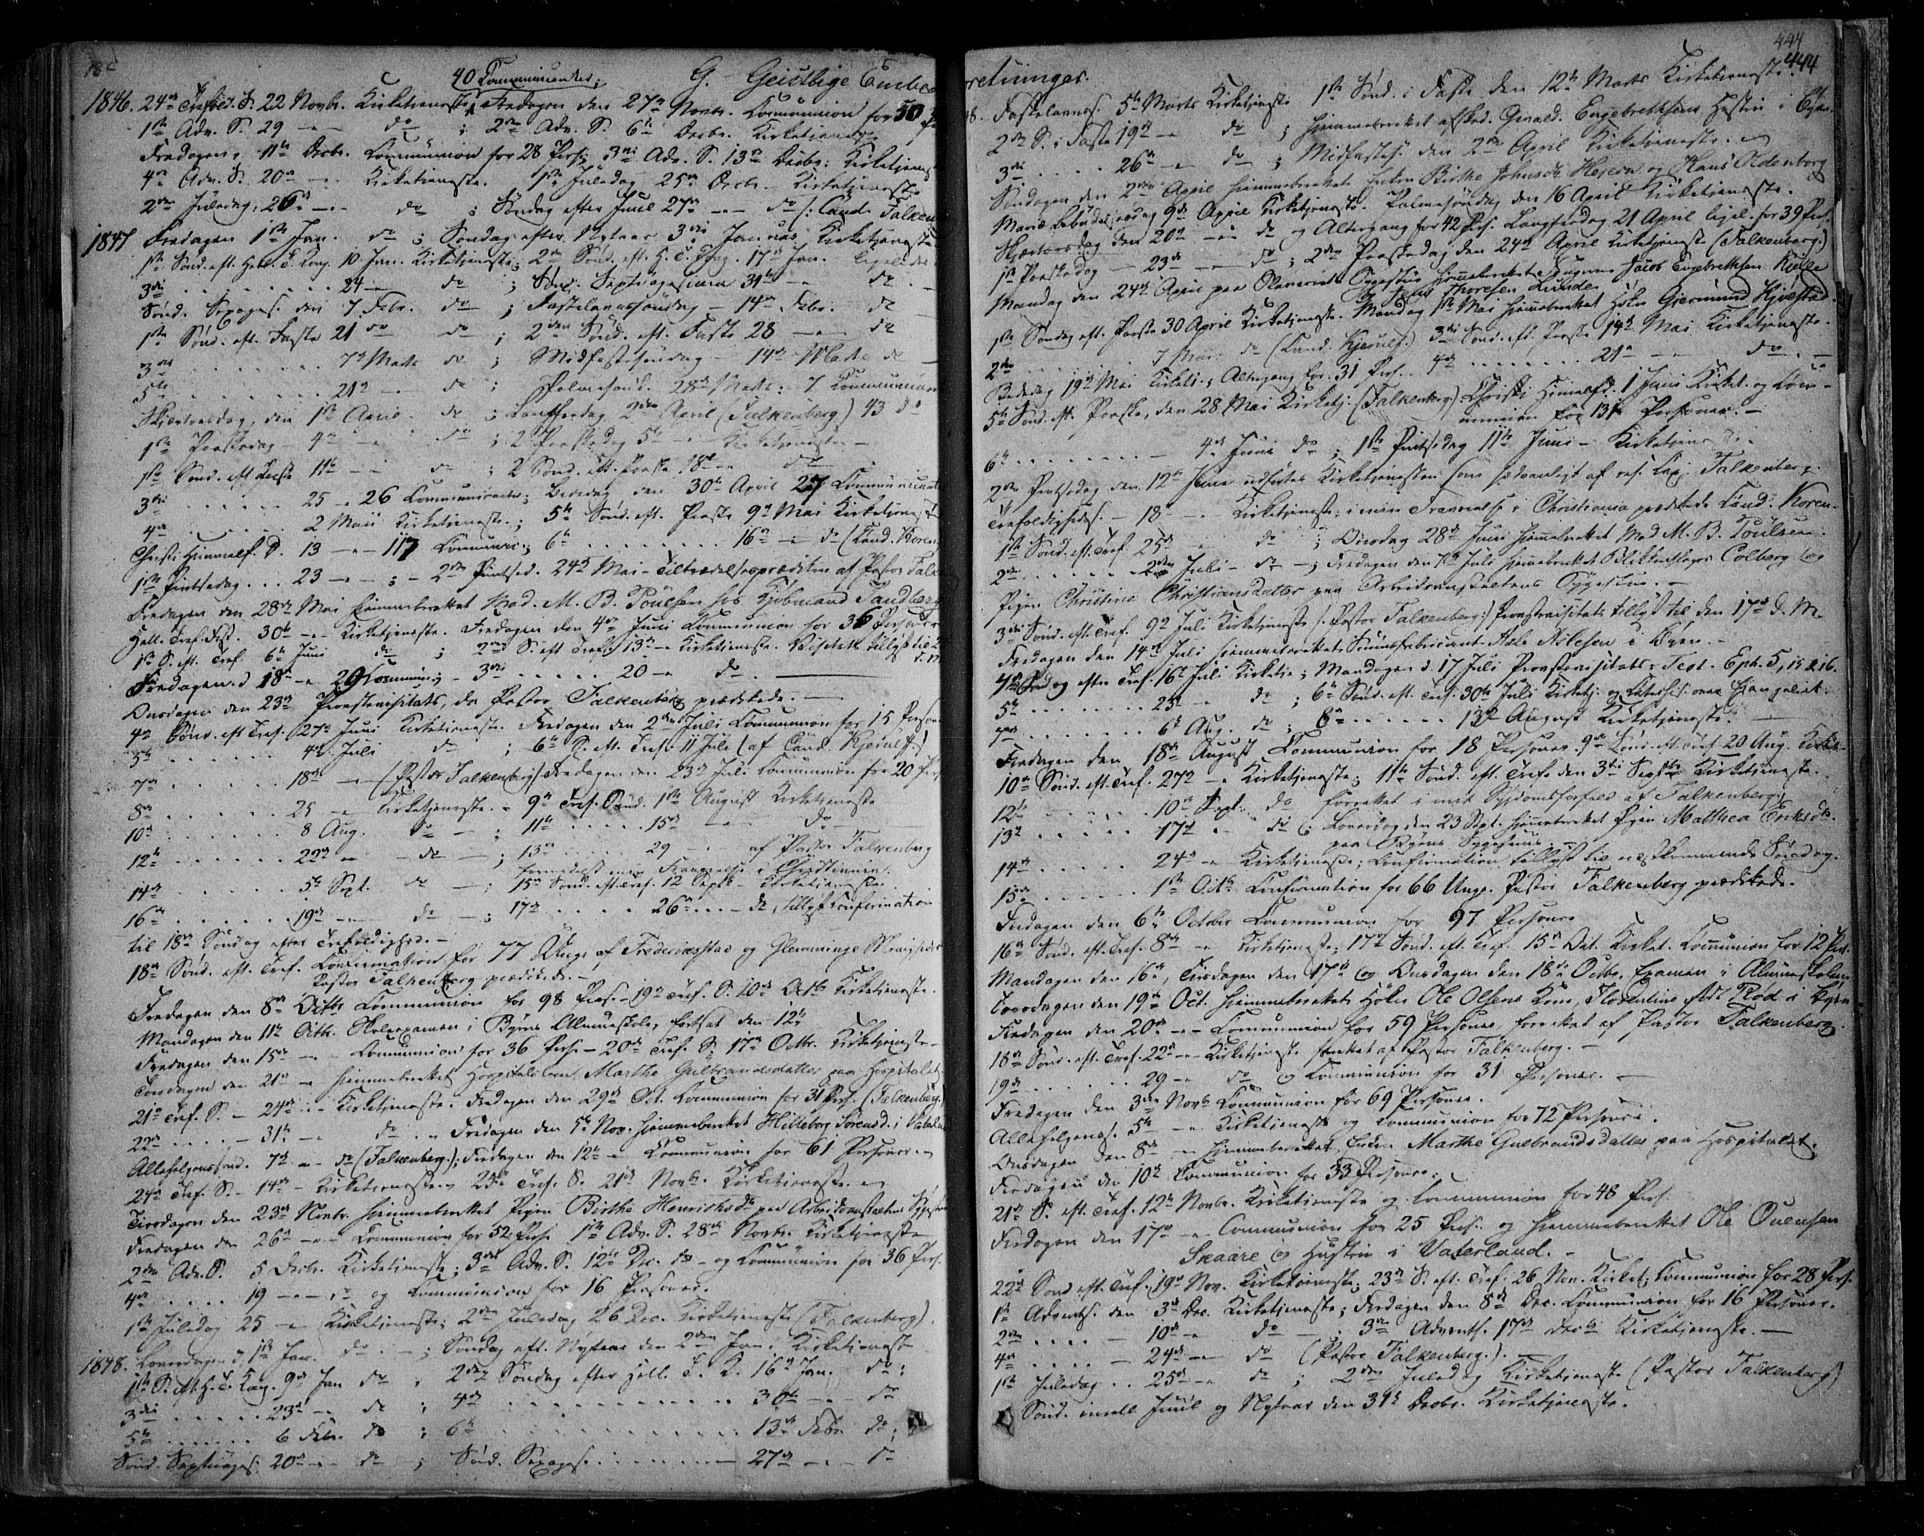 40 Communicanter;
G. Geistlige Embe
1846. 24de Trefold. S. 22 Novbr. Kirketjeneste, Fredagen den 27de Novbr. Communion for 50
1ste Adv. S. 29 — do ; 2den Adv. S. 6te Decbr. Kirketjeneste
Fredagen, 11te Decbr. Communion for 28 Pers; 3die Adv. S. 13de Decbr. Kirketjenest
4de Adv. S. 20de — Kirketjeneste. 1ste Juledag 25de Decbr. Kirketjeneste
2den Juledag, 26de — do ; Søndag efter Juul 27de — do (: Cand. Falken
1847 Fredagen 1ste Jan. do ; Søndag efter Nytaar 3die Januar Kirketjeneste
1ste Sønd. eft. Hell. 3 Kong. 10 Jan. Kirketjeneste; 2den Sønd. eft. H. 3 Kong. 17de Jan. ligeledes
3die . . . . . 24 — do ; Sønd. Septuagesima 31te — do
Sønd. Sexages. den 7 Febr. do ; Fastelavnssøndag — 14de Febr. do
1ste Sønd. eft. Faste 21de do ; 2den Sønd. eft. Faste 28 — do
3die . . . . . 7de Marts do ; Midfastesøndag — 14de Marts do
5te . . . . . 21de — do ; Palmesønd. 28de Marts: 7 Communican
Skjærtorsdag, den 1ste April — do ; Langfredag 2den April (Falkenberg) 43 do
1ste Paaskedag — 4de — do ; 2 Paaskedag 5te — Kirketjeneste —
1ste Sønd. eft Paaske 11te — do ; 2 Sønd. eft. Paaske 18de — do
3die . . . . . 25 — 26 Communicanter; Bededag, den 30te April 27 Communicant
4de . . . . . 2 Mai Kirketjeneste; 5te Sønd. eft. Paaske 9de Mai Kirketjenest
Christi Himmelf. D. 13 — 117 Commun.; 6te . . . . . 16de — do (Cand. Koren
1ste Pintsedag . . 23 — ; — 2den Pintsed. 24de Mai — Tiltrædelsesprædiken af Pastor Falk
Fredagen den 28de Mai hjemmeberettet Mad. M. B. Poulsen hos Kjøbmand Sandberg
Hell. Tref. Fest. 30te — Kirketjeneste. Fredagen den 4de Juni Communion for 36 Personer
1ste S. eft. Tref. 6te Juni do ; 2den S. eft Tref. 13de — Kirketjeneste. Visitats tillyst til
Fredagen d. 18de — 29 Commun; — 3die . . . . . 20 — do
Onsdagen den 23de Provstevisitats, da Pastor Falkenberg prædikede. —
4de Sønd. eft Tref. 27de Juni Kirketjeneste. Fredagen den 2den Juli Communion for 15 Person
5te . . . . . 4de Juli do ; 6te S. eft. Tref. 11 Juli (af Cand. Kjerulf.)
7de . . . . . 18de — (Pastor Falkenberg) Fredagen den 23de Juli Communion for 20 Pers
8de . . . . . 25 — Kirketjeneste. — 9de Tref. Sønd. 1ste August Kirketjeneste
10de . . . . . 8 Aug. do ; 11te . . . . . 15de — do
12te . . . . . 22de — do — ; 13de . . . . . 29 — af Pastor Falkenberg
formedelst min Fraværelse i Christiania.
14de . . . . . 5te Sept. do — ; 15de Sønd. eft. Tref. 12 Septr. Kirketjeneste
16de . . . . . 19de — do — ; 17de . . . . . 26de . . — do, tillyst Confirmation
til 18de Søndag efter Trefoldighed. —
18de Sønd. eft. Tref. Confirmation for 77 Unge af Frederiksstad og Glemminge Menigheder
Pastor Falkenberg prædikede. —
Fredagen den 8de Octbr. Communion for 98 Pers. — 19de Tref. S. 10de Octbr. Kirketjeneste.
Mandagen den 11te Octbr. Skoleexamen i Byens Almueskole, fortsat den 12te
Fredagen den 15de — Communion for 36 Pers — 20de Tref. S. 17de Octbr. Kirketjeneste —
Torsdagen den 21de — hjemmeberettet Hospitalslem Marthe Gulbrandsdatter paa Hospitalet
21de Tref. S. — 24de — Kirketjeneste. Fredagen den 29de Oct. Communion for 31 Pers. (Falkenberg.)
22de . . . . . — 31te — do. — Fredagen den 5te Nov. hjemmeberettet Hilleborg Sørensd. i Vaterland
Allehelgenssønd. 7de — do (Falkenberg.); Fredagen den 12te — Communion for 61 Personer —
24de Tref. S. — 14de — Kirketjeneste. — 25de Tref. S. 21de Novbr. Kirketjeneste. —
Tirsdagen den 23de Novbr. hjemmeberettet Pigen Birthe Henriksd. ved Arbeidsanstaltens Sygestue
Fredagen den 26de — Communion for 52 Pers. 1ste Adv. S. 28de Novbr. Kirketjeneste
2den Adv. S. 5 Decbr. Kirketjeneste; 3die Adv. S. 12te Dec. do — og Communion for 36 Pers.
4de . . . . . 19 — do og Communion for 16 Personer.
1ste Juledag 25 — Kirketjeneste; 2den Juledag 26 Dec. Kirketjeneste (Falkenberg).
1848. Løverdagen d. 1ste Jan. do. — ; Søndag eft. Nytaar den 2den Jan. Kirketjeneste
1ste S. eft. H. 3 Kong. 9de Jan do ; 2den Søndag efter Hell. 3 K. 16de Jan. do ;
3die . . . . . 23de — do ; 4de . . . . . 30te — do
5te . . . . . 6 Febr. do ; 6te . . . . . 13de Febr do ;
Sønd. Septuages. 20de — do ; Sønd. Sexages. . . . . . 27de — do
444
444
retninger.
48. Fastelavnss. 5te Marts Kirketjeneste 1ste Sønd. i Faste den 12te Marts Kirketjeneste.
2den S. i Faste 19de — do ; hjemmeberettet afsked. Engebrethsens Hustru i Byen.
3die . . . . . 26de — do ; Midfastes. den 2den April Kirketjeneste. —
Søndagen den 2den April hjemmeberettet Birthe og Hans Oldenborg
Mariæ Bebudelsesdag 9de April Kirketjeneste. Palmesøndag den 16 April Kirketjeneste.
Skjærtorsdag den 20de — do og Altergang for 42 Pers. Langfredag 21 April ligel. for 39 Pers.
1ste Paaskedag — 23de — do ; 2den Paaskedag den 24de April Kirketjeneste (Falkenberg.)
Mandag den 24de April paa Sygestue hjemmeberettet Jacob Engebrethsen
Thoresen
1ste Søndag eft. Paaske 30 April Kirketjeneste. Mandag 1ste Mai hjemmeberettet Høker Gjermund Hjelstad.
2den . . . . . 7 Mai do (Cand. Kjerulf.) 3die Sønd. eft. Paaske 14de Mai Kirketjeneste.
Bededag 19de Mai Kirketj.; Altergang for 31 Pers. 4de . . . . . 21de — do. —
5te Sønd. eft. Paaske, den 28 Mai Kirketj. (Falkenberg) Christi Himmelfd. 1 Juni Kirket. og Com-
munion for 131 Personer. —
6te . . . . . — 4de Juni do ; 1ste Pintsedag 11te Juni — Kirketjeneste. —
2den Pintsedag den 12te Juni udførtes Kirketjenesten som sædvanligt af res. Cap. Falkenberg.
Trefoldigheds. — 18 — Kirketjeneste; i min Fraværelse i Christiania prædikede Cand. Koren.
1ste Sønd. eft. Tref. 25de — do ; Onsdag 28de Juni hjemmeberettet Mad. M. B. Poulsen.
2den . . . . . 2den Juli — do — ; Fredagen den 7de Juli hjemmeberettet Colberg og
Pigen Christine Christiansdatter paa Arbeidsanstaltens Sygestue. —
3die Sønd. eft. Tref. 9de Juli Kirketjeneste (: Pastor Falkenberg:) Provstevisitats tillyst til den 17de d. M.
Fredagen den 14de Juli hjemmeberettet Nielsen i Byen. —
4de Søndag efter Tref. 16de Juli Kirketje.; Mandagen d. 17 Juli Provstevisitats; Text. Eph. 5, 15 & 16.
5te . . . . . 23de — do ; 6te Sønd. eft. Tref. 30te Juli Kirketj. og Catechis. over Evangeliet.
7de . . . . . 6te Aug. do ; 8de . . . . . 13de August Kirketjeneste. —
Fredagen den 18de August Communion for 18 Personer. 9de Sønd. eft. Tref. 20 Aug. Kirke-
10de Sønd. eft. Tref. 27de — Kirketjeneste; 11te Sønd. eft. Tref. den 3die Septbr. Kirketjeneste.
12te . . . . . 10de Sept. do forrettet i mit Sygdomsforfald af Falkenberg;
13de . . . . . 17de — do ; Løverdag den 23 Sept. hjemmeberettet Pigen Matthea Eriksd.
paa Byens Sygehuus. —
14de . . . . . 24de — Kirketjeneste; Confirmation tillyst til næstkommende Søndag.
15de . . . . . 1ste Octbr. Confirmation for 66 Unge. Pastor Falkenberg prædikede.
Fredagen den 6te October Communion for 97 Personer
16de Sønd. eft. Tref. 8de — Kirketjeneste; 17de Sønd. eft. Tref. 15de Oct. Kirket. Communion for 12 Pers.
Mandagen den 16de, Tirsdagen den 17de og Onsdagen den 18de Octbr. Examen i Almueskolen
Torsdagen den 19de Oct. hjemmeberettet Høker Ole Olsens Kone, Florentine født Rød i Byen
Fredagen den 20de — Communion for 59 Personer forrettet af Pastor Falkenberg.
18de Sønd. eft. Tref. 22de — Kirketjeneste forrettet af Pastor Falkenberg. —
19de . . . . . 29 — do og Communion for 31 Personer. —
Fredagen den 3die Novbr. Communion for 69 Personer.
Allehelgenss. 5te — Kirketjeneste og Communion for 72 Personer.
Onsdagen den 8de — hjemmeberettet Marthe Gulbrandsdatter paa Hospitalet.
Fredagen den 10de Communion for 33 Personer.
21de S. eft. Tref. 12te Novbr. Kirketjeneste og Communion for 48 Pers.
Fredagen den 17de — Communion for 25 Pers. og hjemmeberettet Ole Ouensen
Skaare og Hustru i Vaterland. —
22de Sønd. eft. Tref. 19de Nov. Kirketjeneste; 23de S. eft. Tref. 26 Nov. Kirket; Communion for 28 Pers.
1ste Advents. den 3die Dec. Kirketjeneste; Fredagen den 8de Dec. Communion for 16 Personer.
2den . . . . — 10de — do — ; 3die Advents. 17de Decbr. Kirketjeneste. —
4de . . . . — 24de — do (Pastor Falkenberg.). —
1ste Juledag . . 25de — do ; 2den Juledag Kirketjeneste (Pastor Falkenberg)
Sønd. imell. Juul og Nytaar den 31te Decbr. Kirketjeneste.